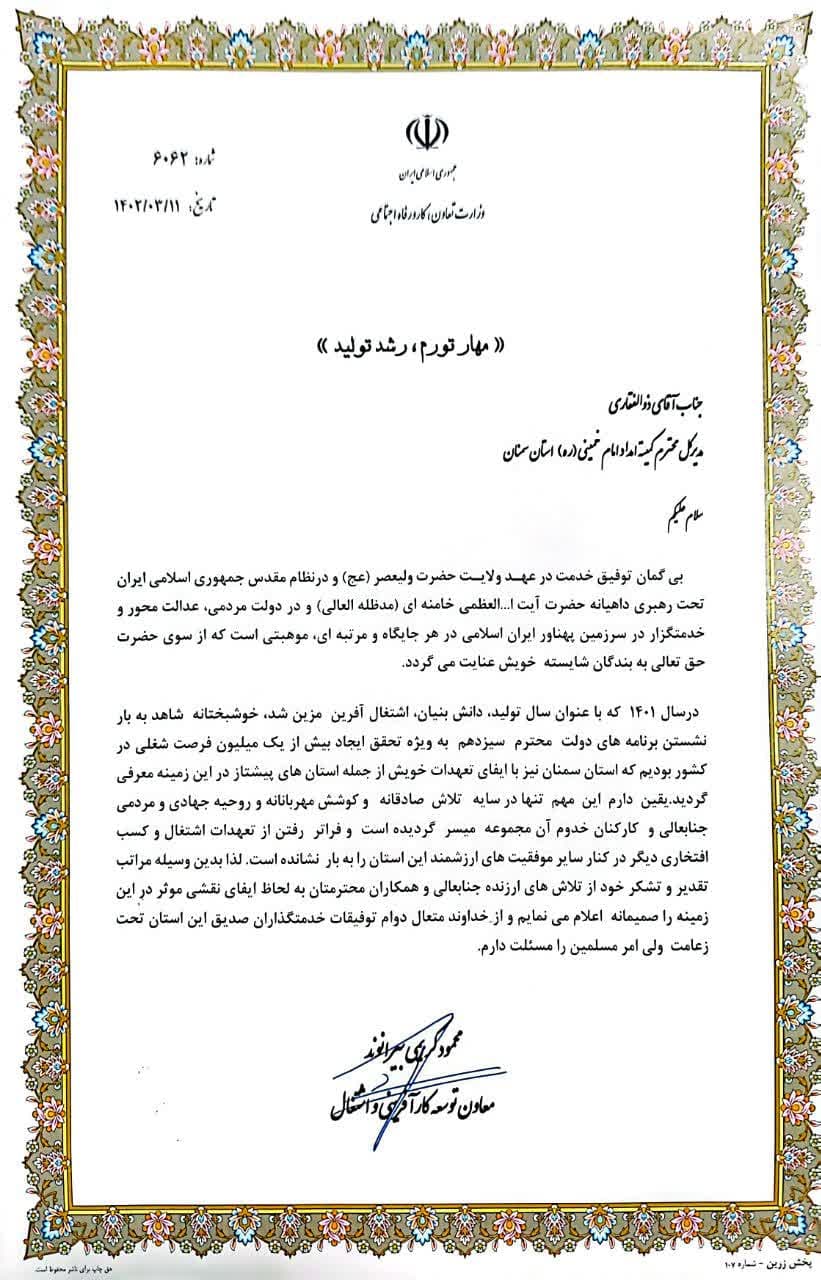 جمهوری اسلامی ایران
وزارت تعاون، کار و رفاه اجتماعی
شماره: ۶۰۶۲
تاریخ: ۱۴۰۲/۰۳/۱۱
« مهار تورم، رشد تولید »
جناب آقای ذوالفقاری
مدیرکل محترم کمیته امداد امام خمینی (ره) استان سمنان
سلام علیکم
بی گمان توفیق خدمت در عهد ولایت حضرت ولیعصر (عج) و درنظام مقدس جمهوری اسلامی ایران
تحت رهبری داهیانه حضرت آیت ا...العظمی خامنه ای (مدظله العالی) و در دولت مردمی، عدالت محور و
خدمتگزار در سرزمین پهناور ایران اسلامی در هر جایگاه و مرتبه ای، موهبتی است که از سوی حضرت
حق تعالی به بندگان شایسته خویش عنایت می گردد.
درسال ۱۴۰۱ که با عنوان سال تولید، دانش بنیان، اشتغال آفرین مزین شد، خوشبختانه شاهد به بار
نشستن برنامه های دولت محترم سیزدهم به ویژه تحقق ایجاد بیش از یک میلیون فرصت شغلی در
کشور بودیم که استان سمنان نیز با ایفای تعهدات خویش از جمله استان های پیشتاز در این زمینه معرفی
گردید.یقین دارم این مهم تنها در سایه تلاش صادقانه و کوشش مهربانانه و روحیه جهادی و مردمی
جنابعالی و کارکنان خدوم آن مجموعه میسر گردیده است و فراتر رفتن از تعهدات اشتغال و کسب
افتخاری دیگر در کنار سایر موفقیت های ارزشمند این استان را به بار نشانده است. لذا بدین وسیله مراتب
تقدیر و تشکر خود از تلاش های ارزنده جنابعالی و همکاران محترمتان به لحاظ ایفای نقشی موثر در این
زمینه را صمیمانه اعلام می نمایم و از خداوند متعال دوام توفیقات خدمتگذاران صدیق این استان تحت
زعامت ولی امر مسلمین را مسئلت دارم.
محمود کریمی بیرانوند
معاون توسعه کارآفرینی و اشتغال
پخش زرین - شماره ۱۰۷
حق چاپ برای ناشر محفوظ است.